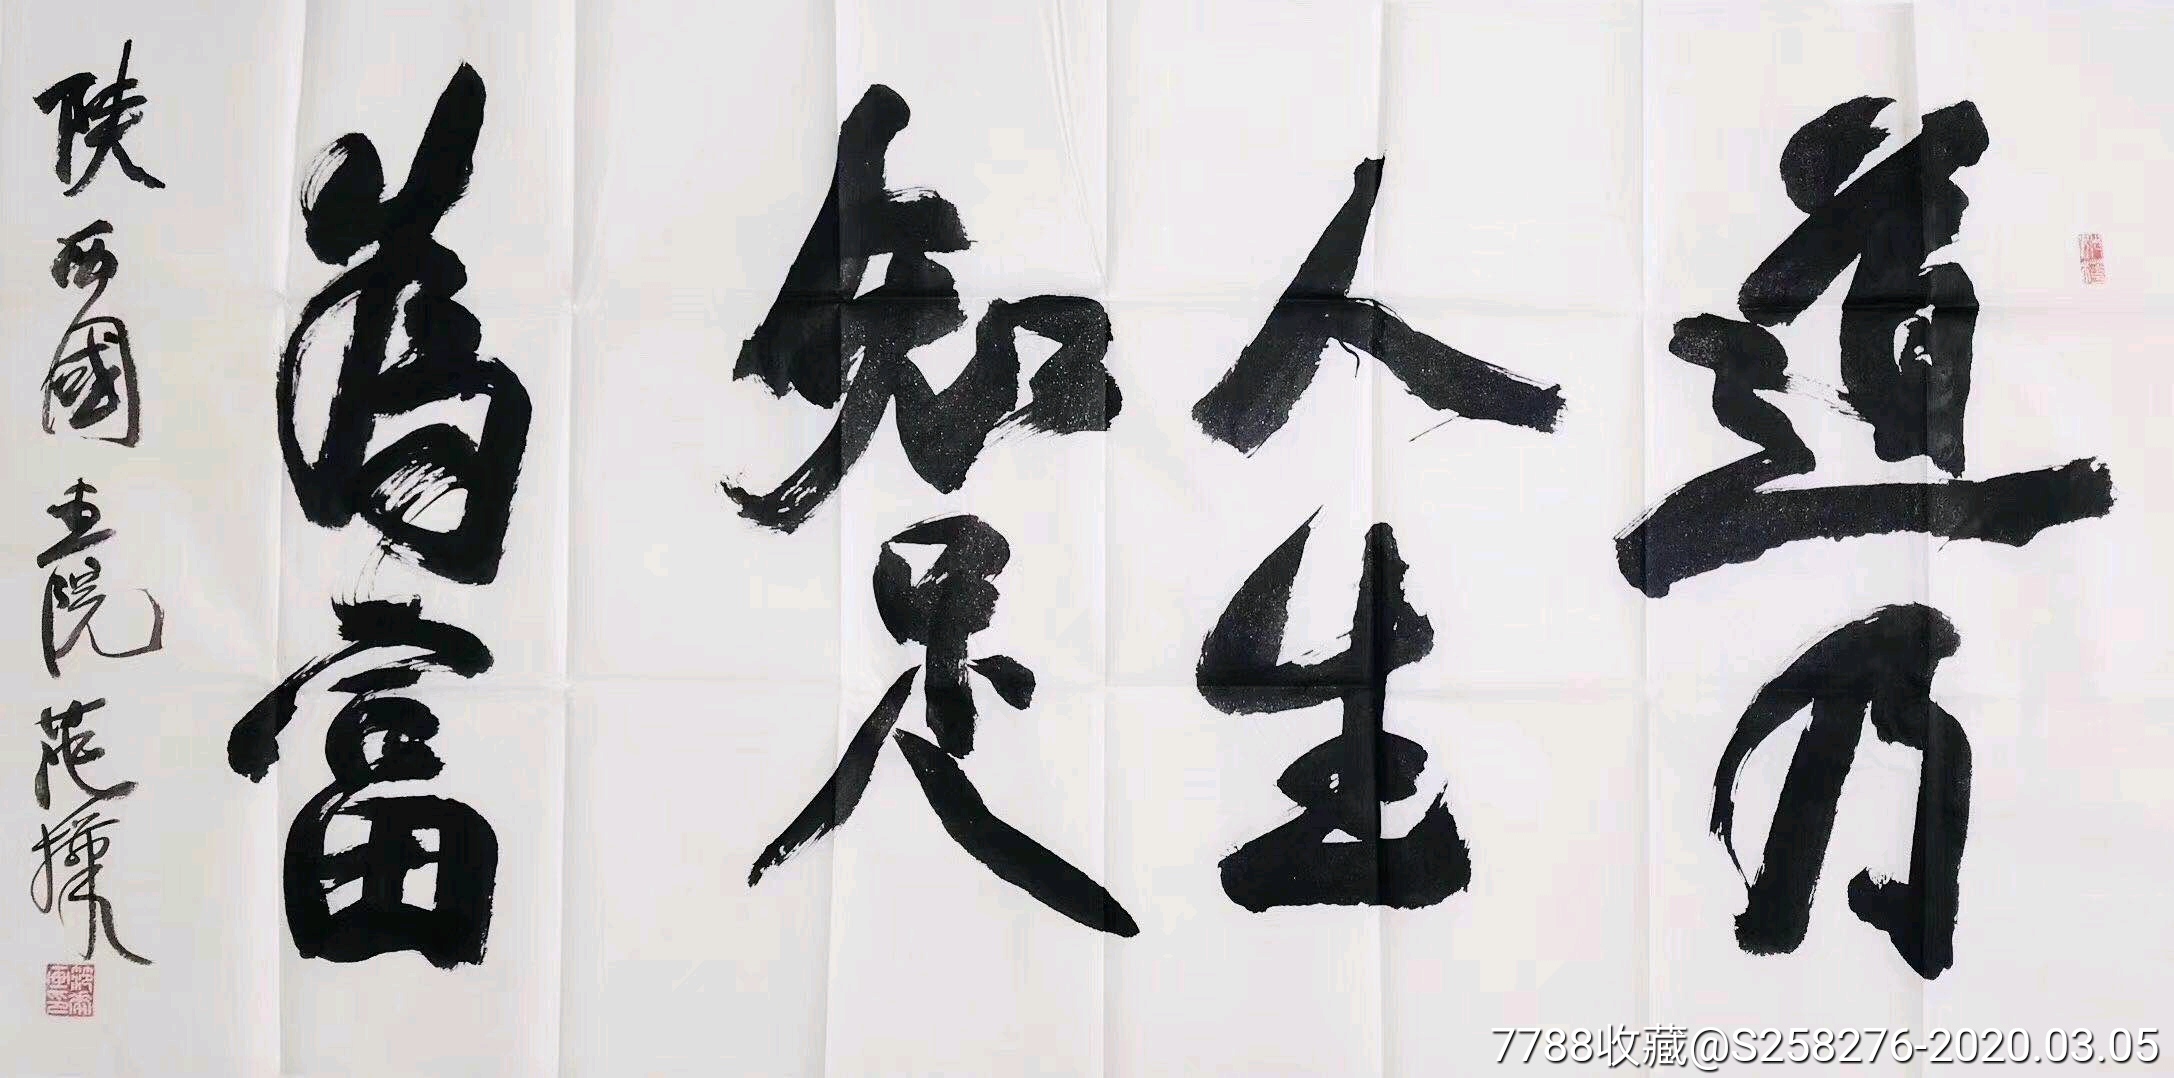 道乃
人生
知足
為富
陕西國畫院范
7788收藏@S258276-2020.03.05